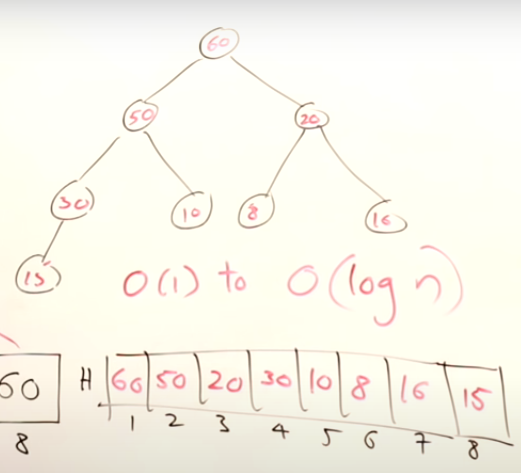 60
50 20
30 10 8 16
15
O(1) to O(log n)
60 H 60 50 20 30 10 8 16 15
8 1 2 3 4 5 6 7 8